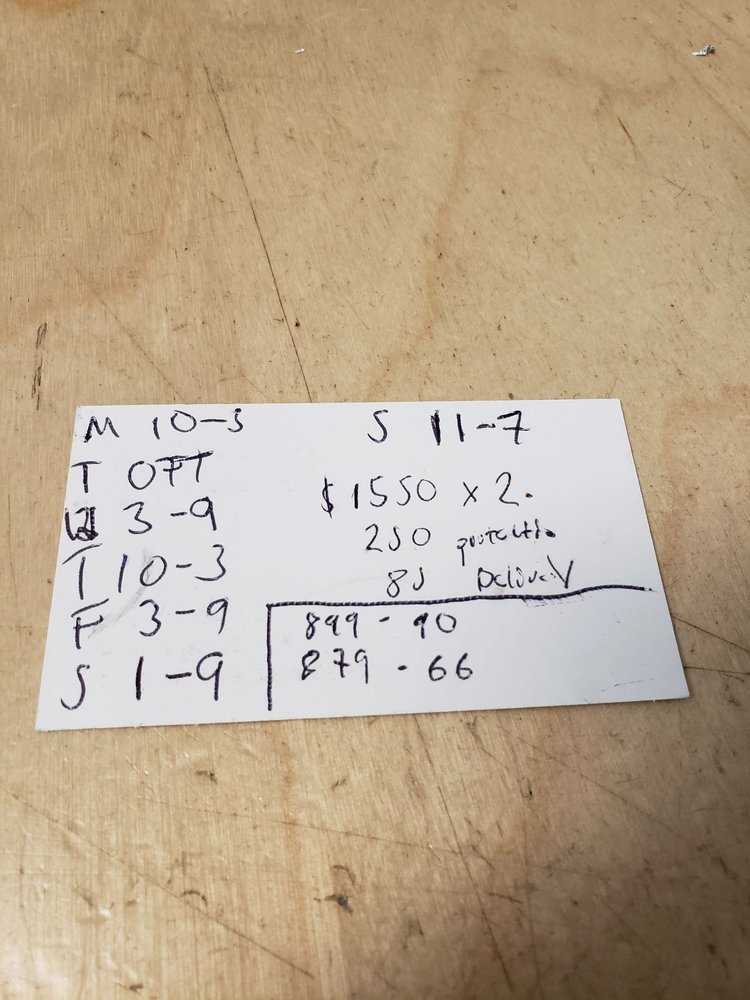 M 10-3
T OFF
W 3-9
T 10-3
F 3-9
S 1-9
S 11-7
$1550 x 2.
250 protectio
85 Delivery
899 - 90
879 - 66